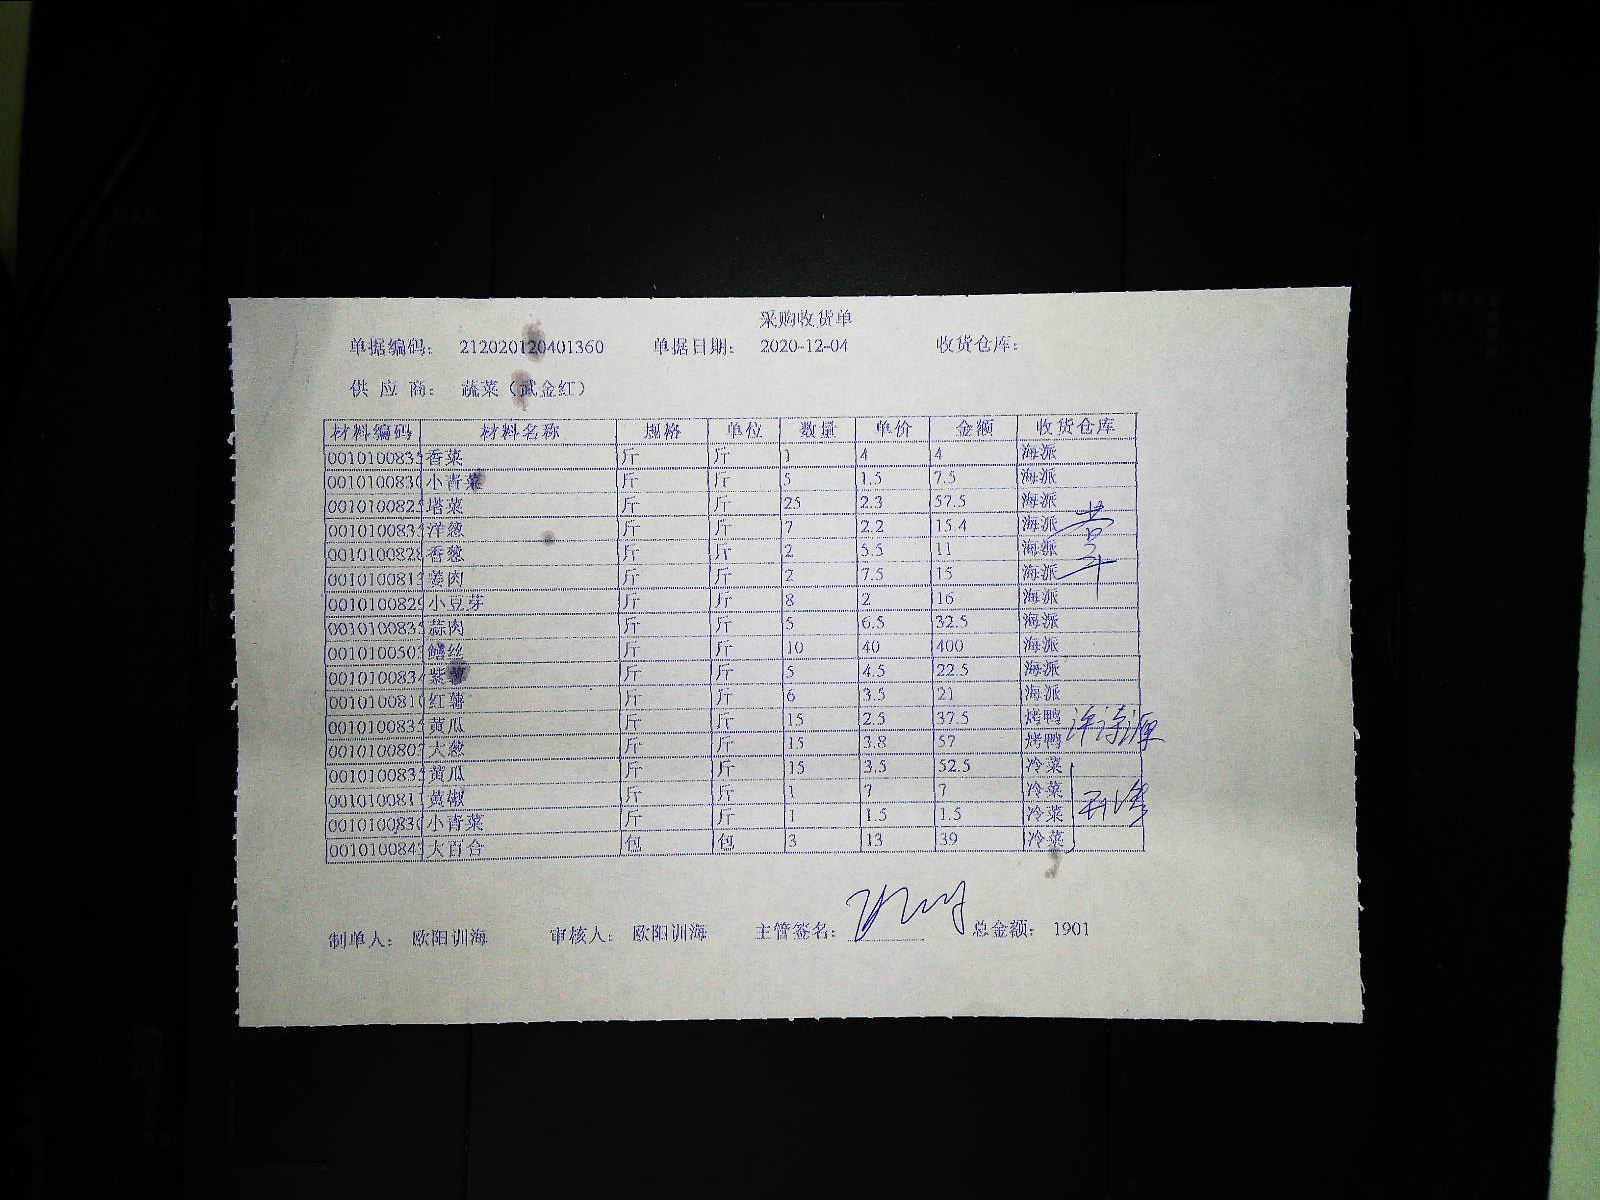 采购收货单
单据编码： 212020120401360 单据日期： 2020-12-04 收货仓库：
供 应 商： 蔬菜（武金红）
材料编码 材料名称 规格 单位 数量 单价 金额 收货仓库
001010083 香菜 斤 斤 1 4 4 海派
001010083 小青菜 斤 斤 5 1.5 7.5 海派
001010082 塔菜 斤 斤 25 2.3 57.5 海派
001010083 洋葱 斤 斤 7 2.2 15.4 海派
001010082 香葱 斤 斤 2 5.5 11 海派
001010081 姜肉 斤 斤 2 7.5 15 海派
001010082 小豆芽 斤 斤 8 2 16 海派
001010083 蒜肉 斤 斤 5 6.5 32.5 海派
001010050 鳝丝 斤 斤 10 40 400 海派
001010083 紫薯 斤 斤 5 4.5 22.5 海派
001010081 红薯 斤 斤 6 3.5 21 海派
001010083 黄瓜 斤 斤 15 2.5 37.5 烤鸭
001010080 大葱 斤 斤 15 3.8 57 烤鸭
001010083 黄瓜 斤 斤 15 3.5 52.5 冷菜
001010081 黄椒 斤 斤 1 7 7 冷菜
001010083 小青菜 斤 斤 1 1.5 1.5 冷菜
001010084 大百合 包 包 3 13 39 冷菜
制单人： 欧阳训海 审核人： 欧阳训海 主管签名： 总金额： 1901